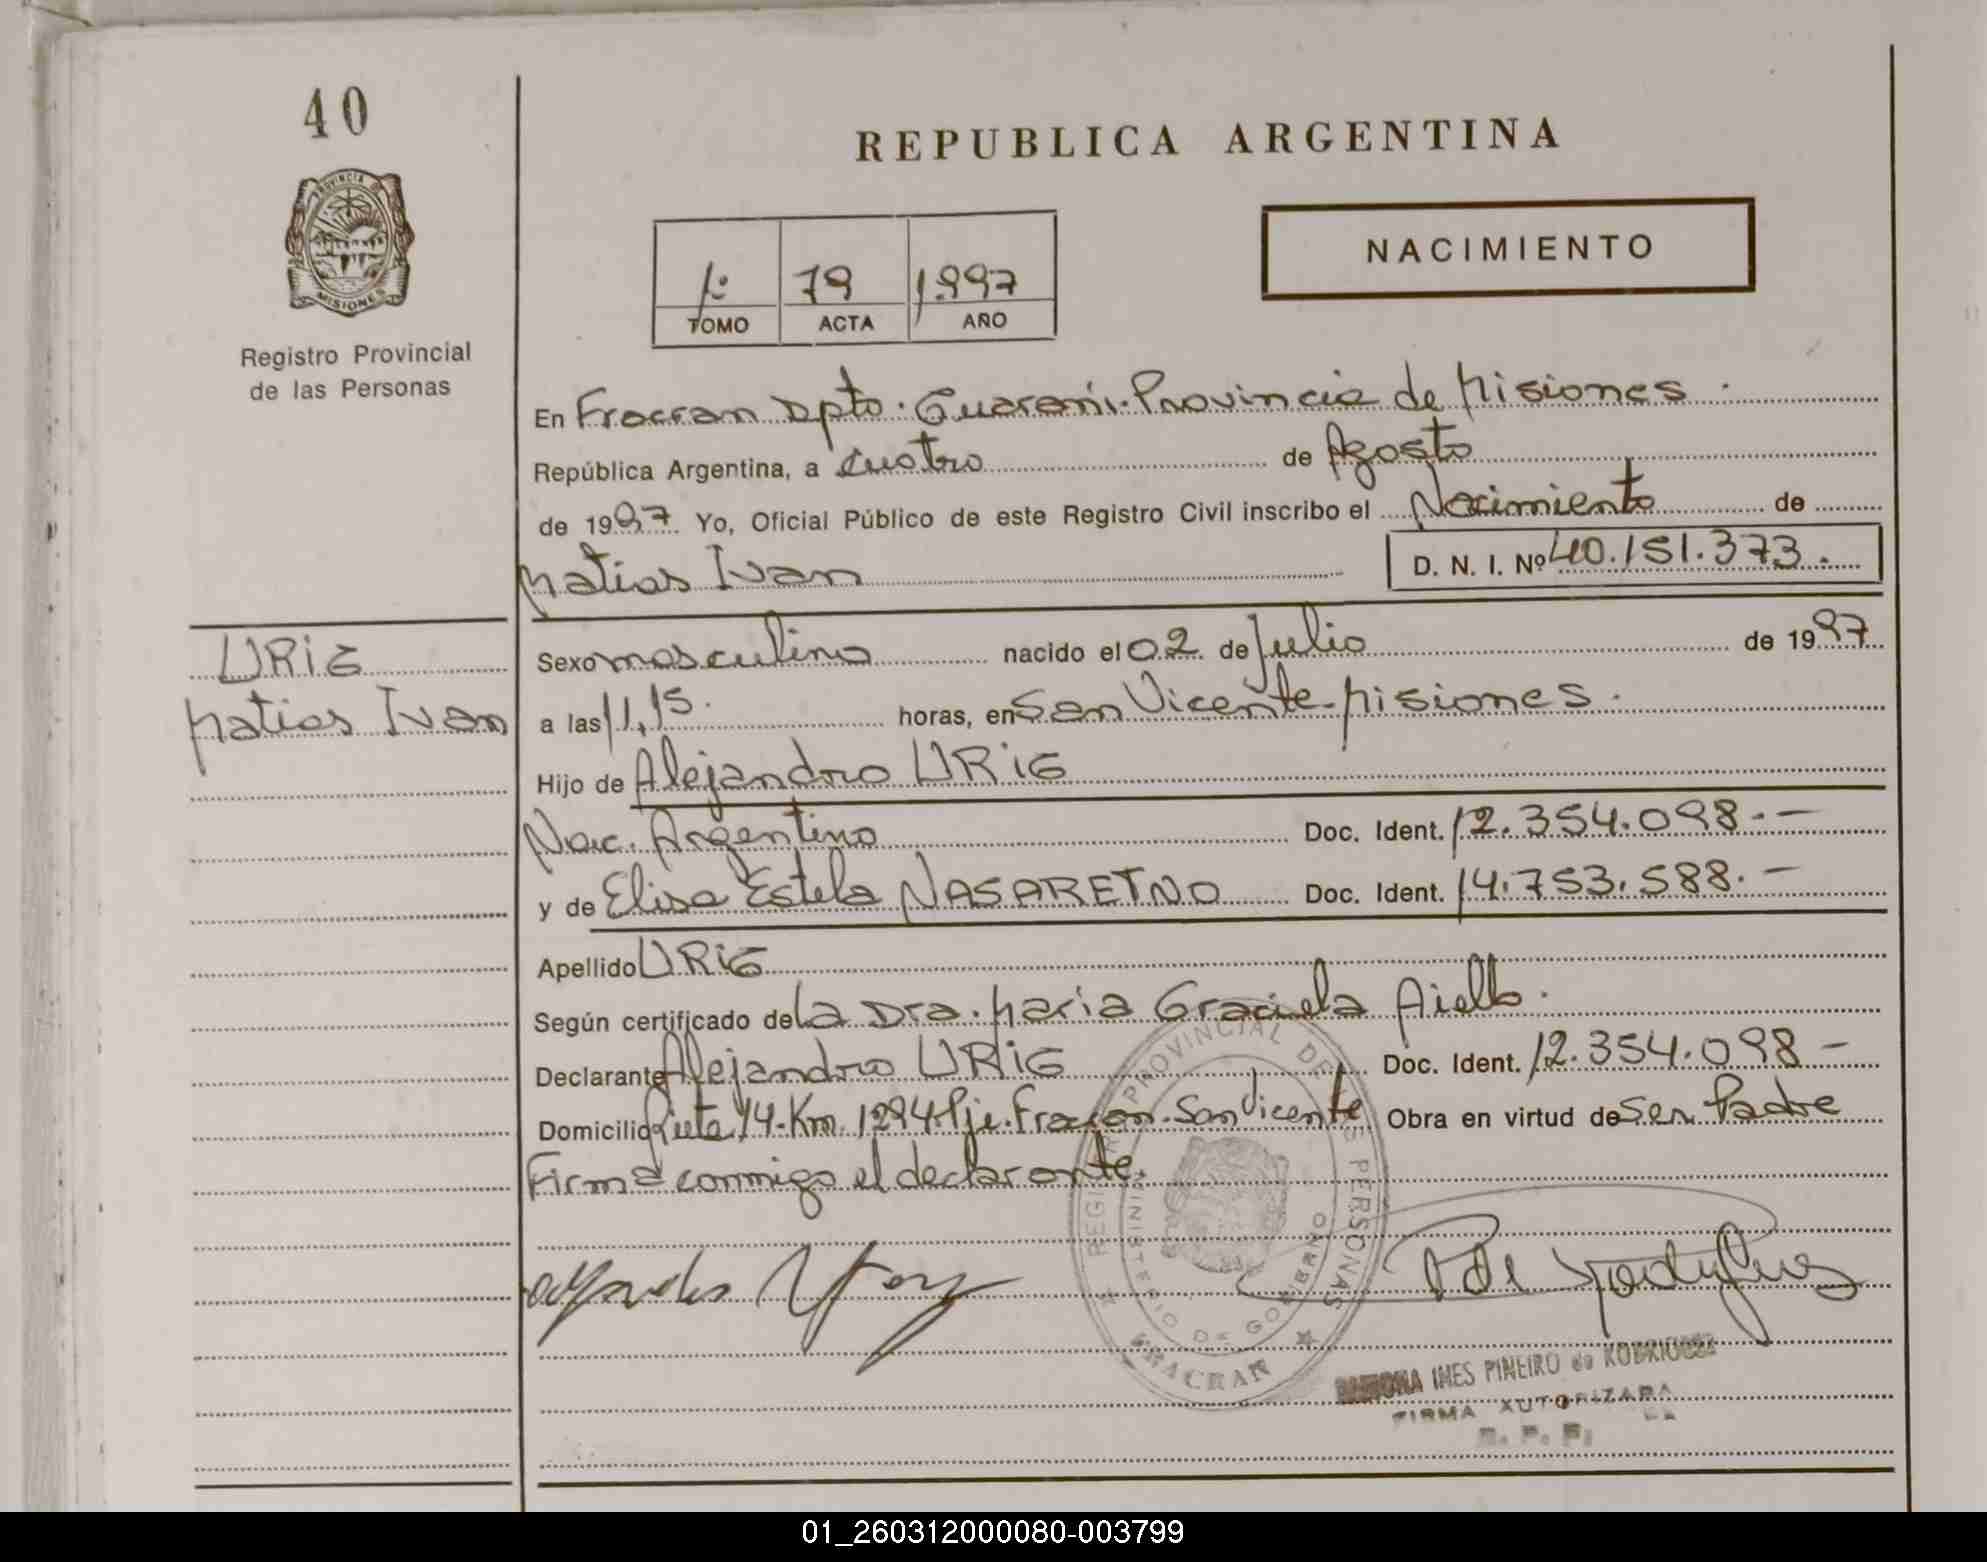 40
REPUBLICA ARGENTINA
PROVINCIA DE
MISIONES
Registro Provincial
de las Personas
1º 79 1.997
TOMO ACTA AÑO
NACIMIENTO
En Fracran Dpto. Guaraní. Provincia de Misiones.
República Argentina, a cuatro de Agosto
de 1997. Yo, Oficial Público de este Registro Civil inscribo el Nacimiento de
Matias Ivan
D. N. I. Nº 40.151.373.
URIG
Matias Ivan
Sexo masculino nacido el 02 de Julio de 1997
a las 11,15. horas, en San Vicente - Misiones.
Hijo de Alejandro URiG
Nac. Argentino Doc. Ident. 12.354.098.-
y de Elisa Estela NASARETNO Doc. Ident. 14.753.588.-
Apellido URiG
Según certificado de La Dra. Maria Graciela Aiello.
Declarante Alejandro URiG Doc. Ident. 12.354.098-
Domicilio Ruta 14-Km. 1294. Pje. Fracran. San Vicente Obra en virtud de Ser Padre
Firma conmigo el declarante.
REGISTRO PROVINCIAL DE LAS PERSONAS
MINISTERIO DE GOBIERNO
FRACRAN
RAMONA INES PINEIRO de RODRIGUEZ
FIRMA AUTORIZADA
R. P. P.
01_260312000080-003799